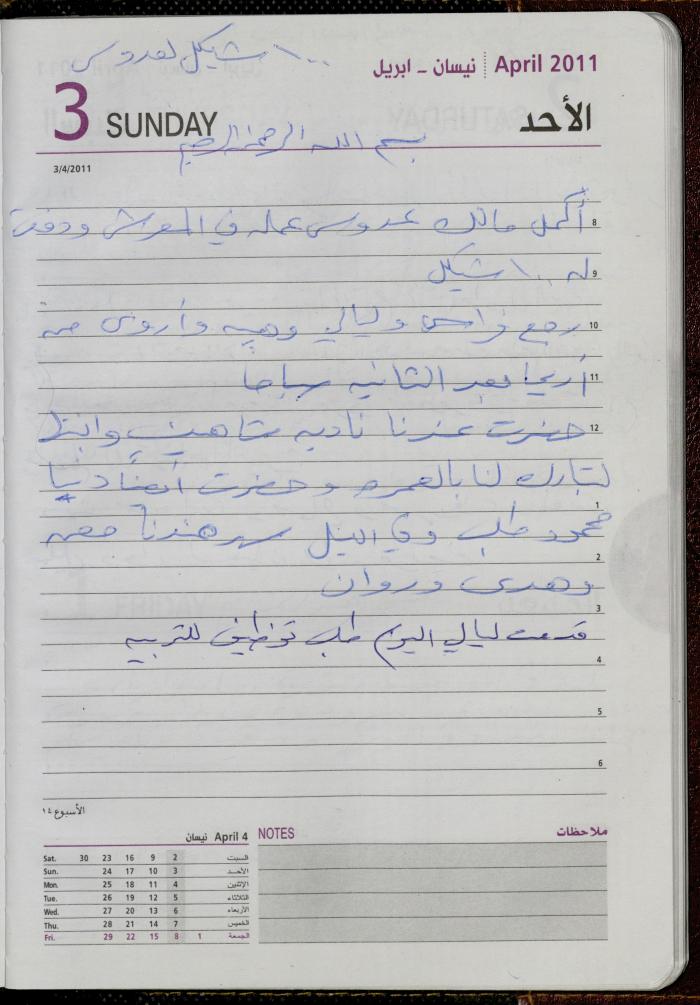 ١٠٠ شيكل لعدوس
April 2011 نيسان - ابريل
3 SUNDAY الأحد
بسم الله الرحمن الرحيم
3/4/2011
أكمل مالك عدوس عمله في المعرش ودفعت 8
له ١٠٠ شيكل 9
رجع فراس وليالي وهبه وأروى من 10
أريحا بعد الثانيه صباحا 11
حضرت عندنا ناديه شاهين وابنتها 12
لتبارك لنا بالعمره وحضرت أيضا دنيا
1
محمود طلب وفي الليل سهر عندنا معن
2
وهدى وروان
3
قدمت ليالي اليوم طلب توظيف للتربيه
4
5
6
الأسبوع ١٤
April 4 نيسان
NOTES ملاحظات
Sat. 30 23 16 9 2 السبت
Sun. 24 17 10 3 الأحد
Mon. 25 18 11 4 الإثنين
Tue. 26 19 12 5 الثلاثاء
Wed. 27 20 13 6 الأربعاء
Thu. 28 21 14 7 الخميس
Fri. 29 22 15 8 1 الجمعة